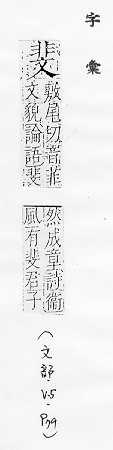 字彙
斐
敷尾切音菲
文貌論語斐
然成章詩衛
風有斐君子
(文部.V.5.P79)